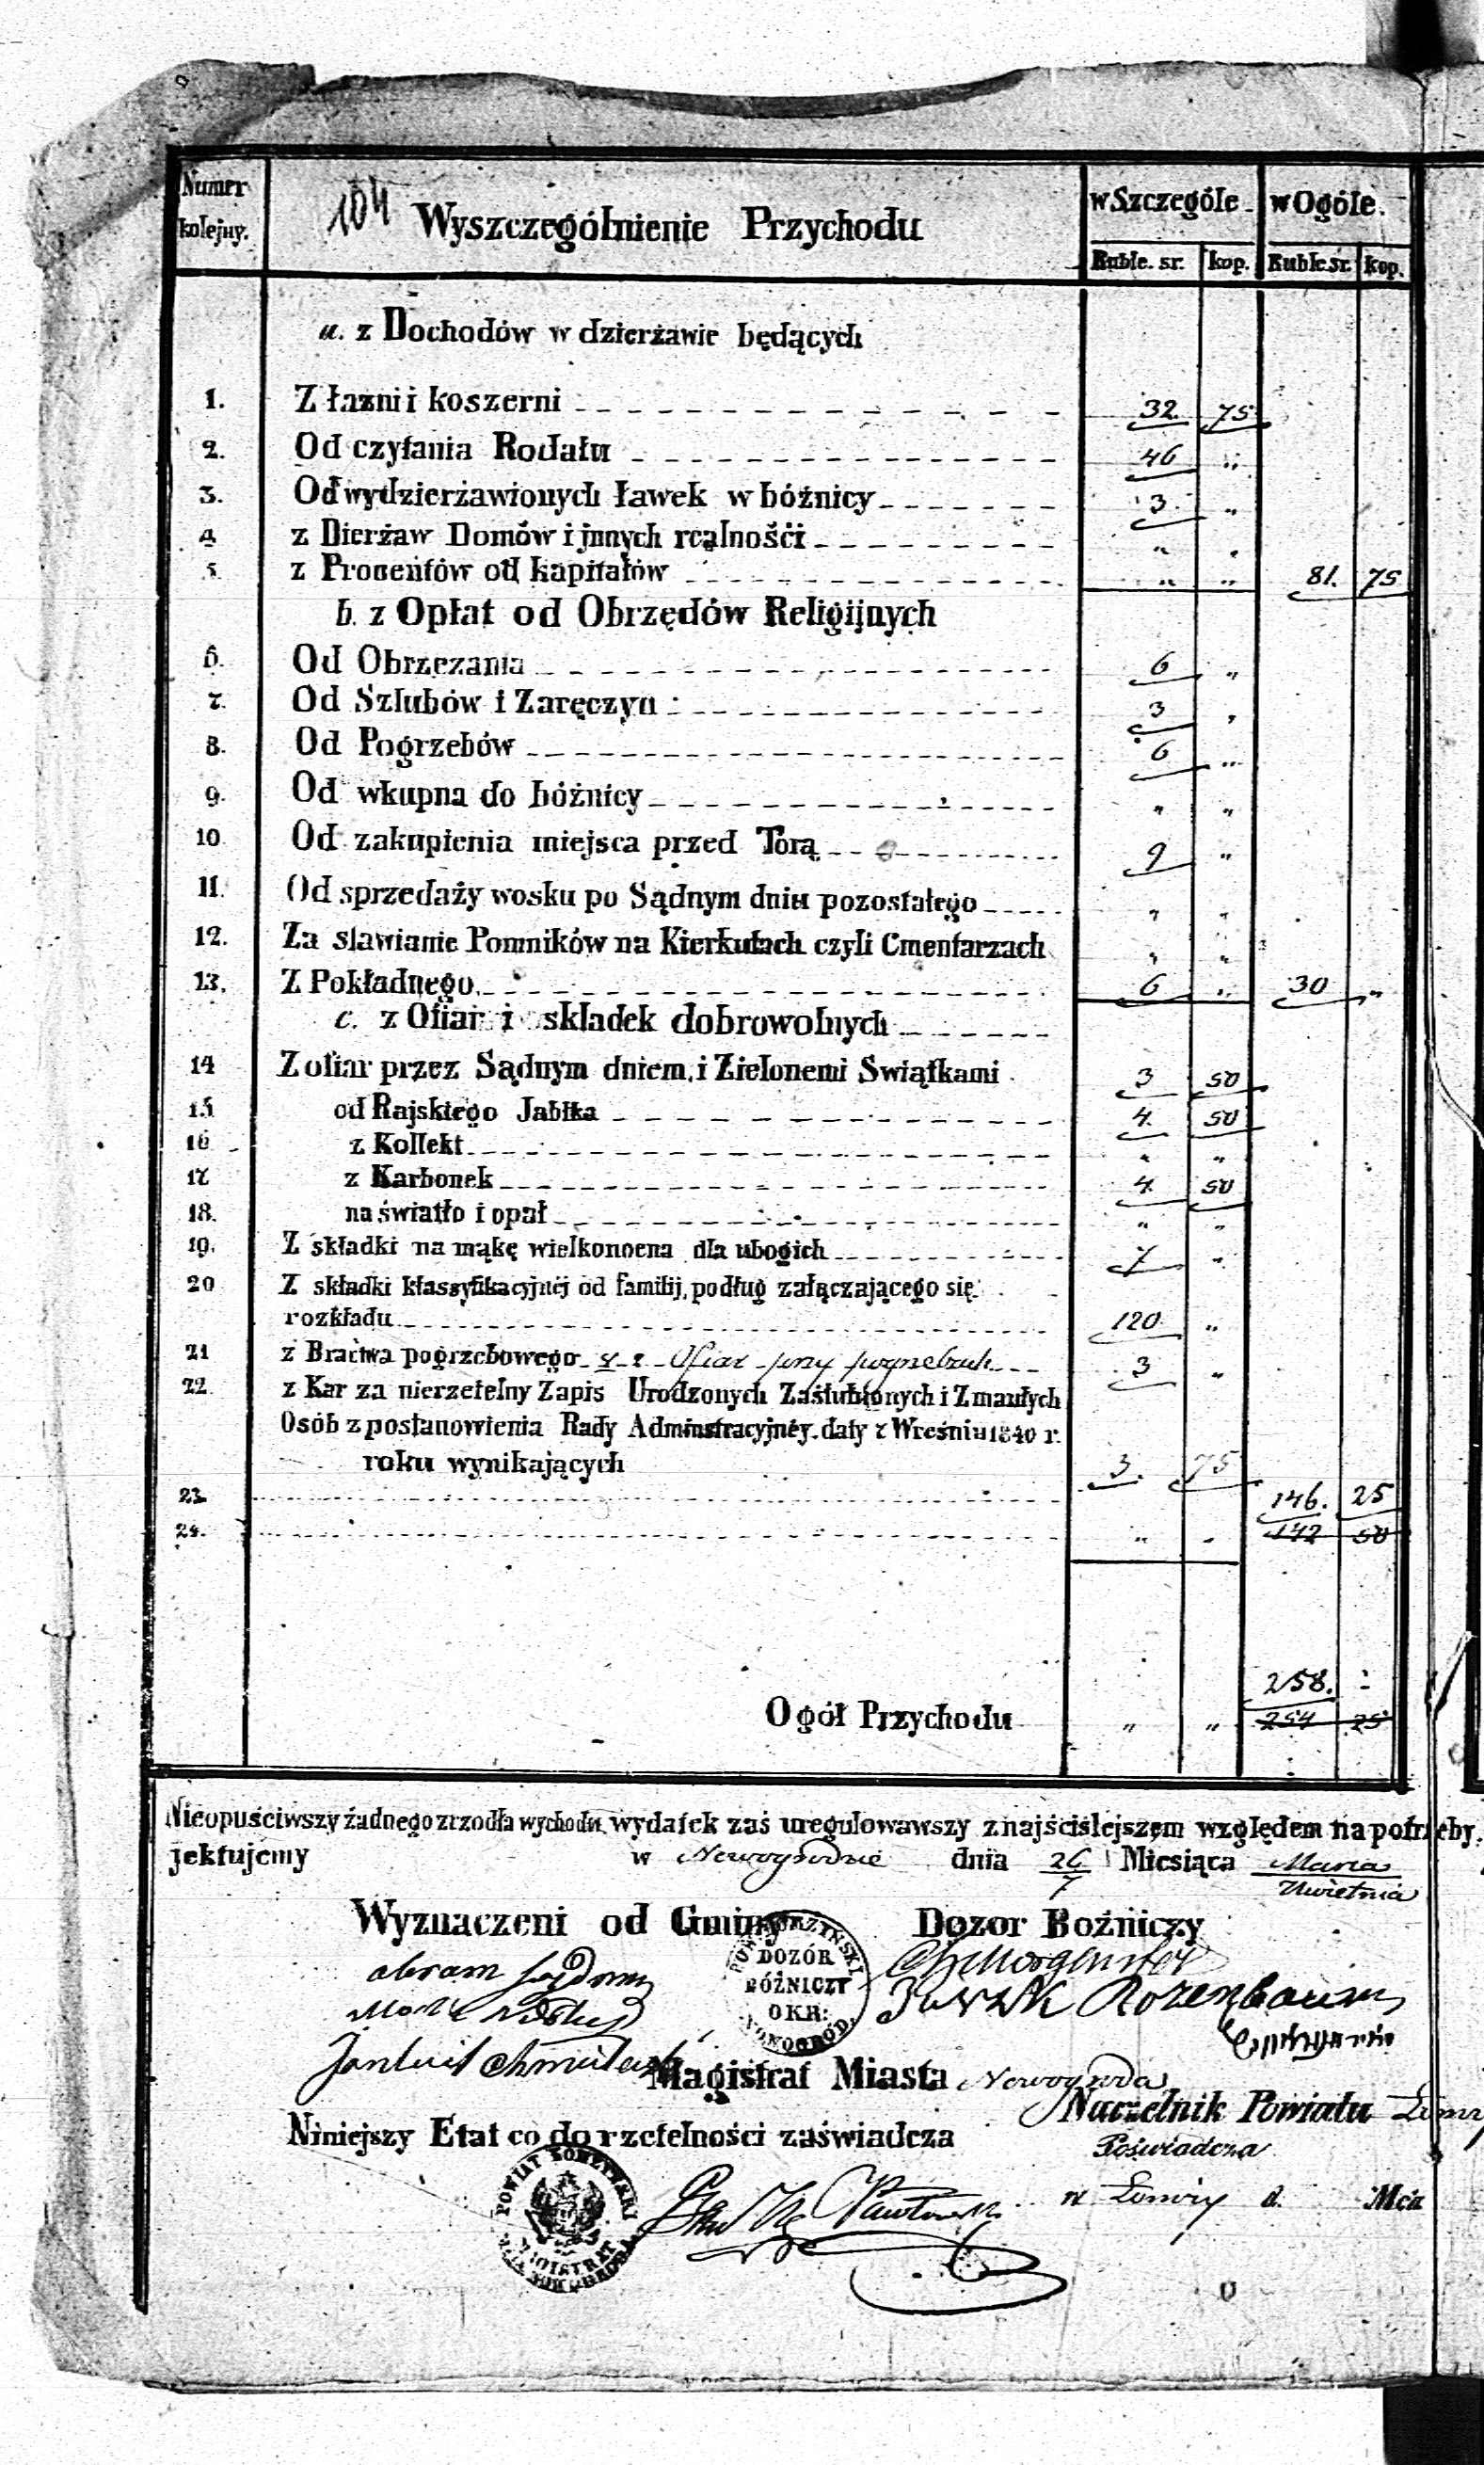 Numer kolejny.
104 Wyszczególnienie Przychodu
w Szczególe w Ogóle.
Ruble. sr. kop. Ruble sr. kop.
a. z Dochodów w dzierżawie będących
1. Z łazni i koszerni 32. 75
2. Od czytania Rodału 46 "
3. Od wydzierżawionych ławek w bóżnicy 3 "
4 z Dierżaw Domów i jnnych realnośći " "
5 z Procentów od kapitałów " " 81. 75
b. z Opłat od Obrzędów Religijnych
6. Od Obrzezania 6 "
7. Od Szlubów i Zaręczyn 3 "
8. Od Pogrzebów 6 "
9. Od wkupna do bóżnicy " "
10 Od zakupienia miejsca przed Torą 9 "
11. Od sprzedaży wosku po Sądnym dniu pozostałego " "
12. Za stawianie Pomników na Kierkutach czyli Cmentarzach " "
13. Z Pokładnego 6 " 30 "
c. z Ofiar i składek dobrowolnych
14 Z ofiar przez Sądnym dniem i Zielonemi Swiątkami 3 50
15 od Rajskiego Jabłka 4. 50
16 z Kollekt " "
17 z Karbonek 4. 50
18. na światło i opał " "
19. Z składki na mąkę wielkonocna dla ubogich 7 "
20 Z składki klassyfikacyjnéj od familij, podług załączającego się
rozkładu 120 "
21 z Bractwa pogrzebowego z Ofiar przy pogrzebach 3 "
22 z Kar za nierzetelny Zapis Urodzonych Zaślubionych i Zmarłych
Osób z postanowienia Rady Adminstracyjnéy daty z Wreśnia 1840 r.
roku wynikających 3. 75
23. 146. 25
24. " " 142 50
258. -
Ogół Przychodu " " 254 25
Nieopuściwszy żadnego zrzodła wychodu, wydatek zaś uregulowawszy z najściślejszem względem na potrzeby,
jektujemy w Nowogrodzie dnia 26/7 Miesiąca Marca/Kwietnia
Wyznaczeni od Gminy Dozor Boźniczy
DOZÓR
BÓŻNICZY
OKR:
NOWOGRÓD.
Rozenbaum
Magistrat Miasta Nowogroda
Naczelnik Powiatu
Niniejszy Etat co do rzetelności zaświadcza
Poświadcza
POWIAT ŁOMŻYŃSKI
MAGISTRAT
w Łomży d. Mca